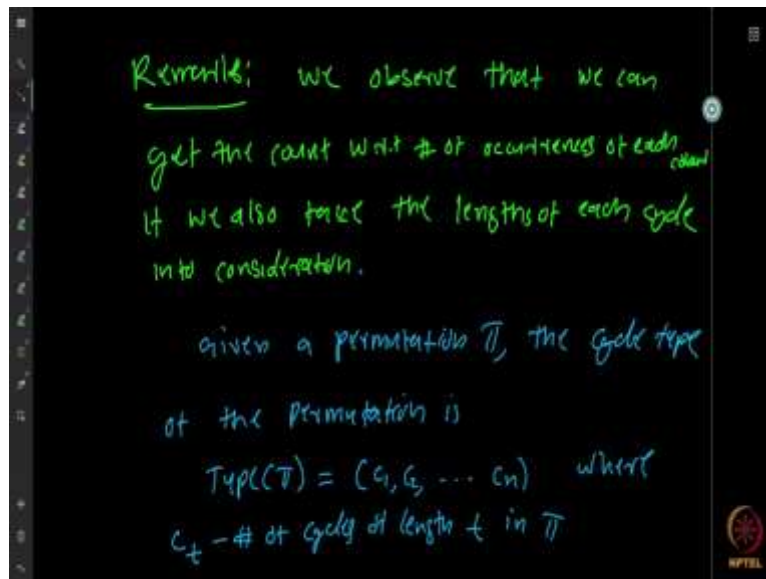 Remark: we observe that we can
get the count w.r.t # of occurrences of each colour
if we also take the lengths of each cycle
into consideration.
Given a permutation π, the cycle type
of the permutation is
Type(π) = (c₁, c₂, ... cₙ) where
c_t - # of cycles of length t in π
NPTEL